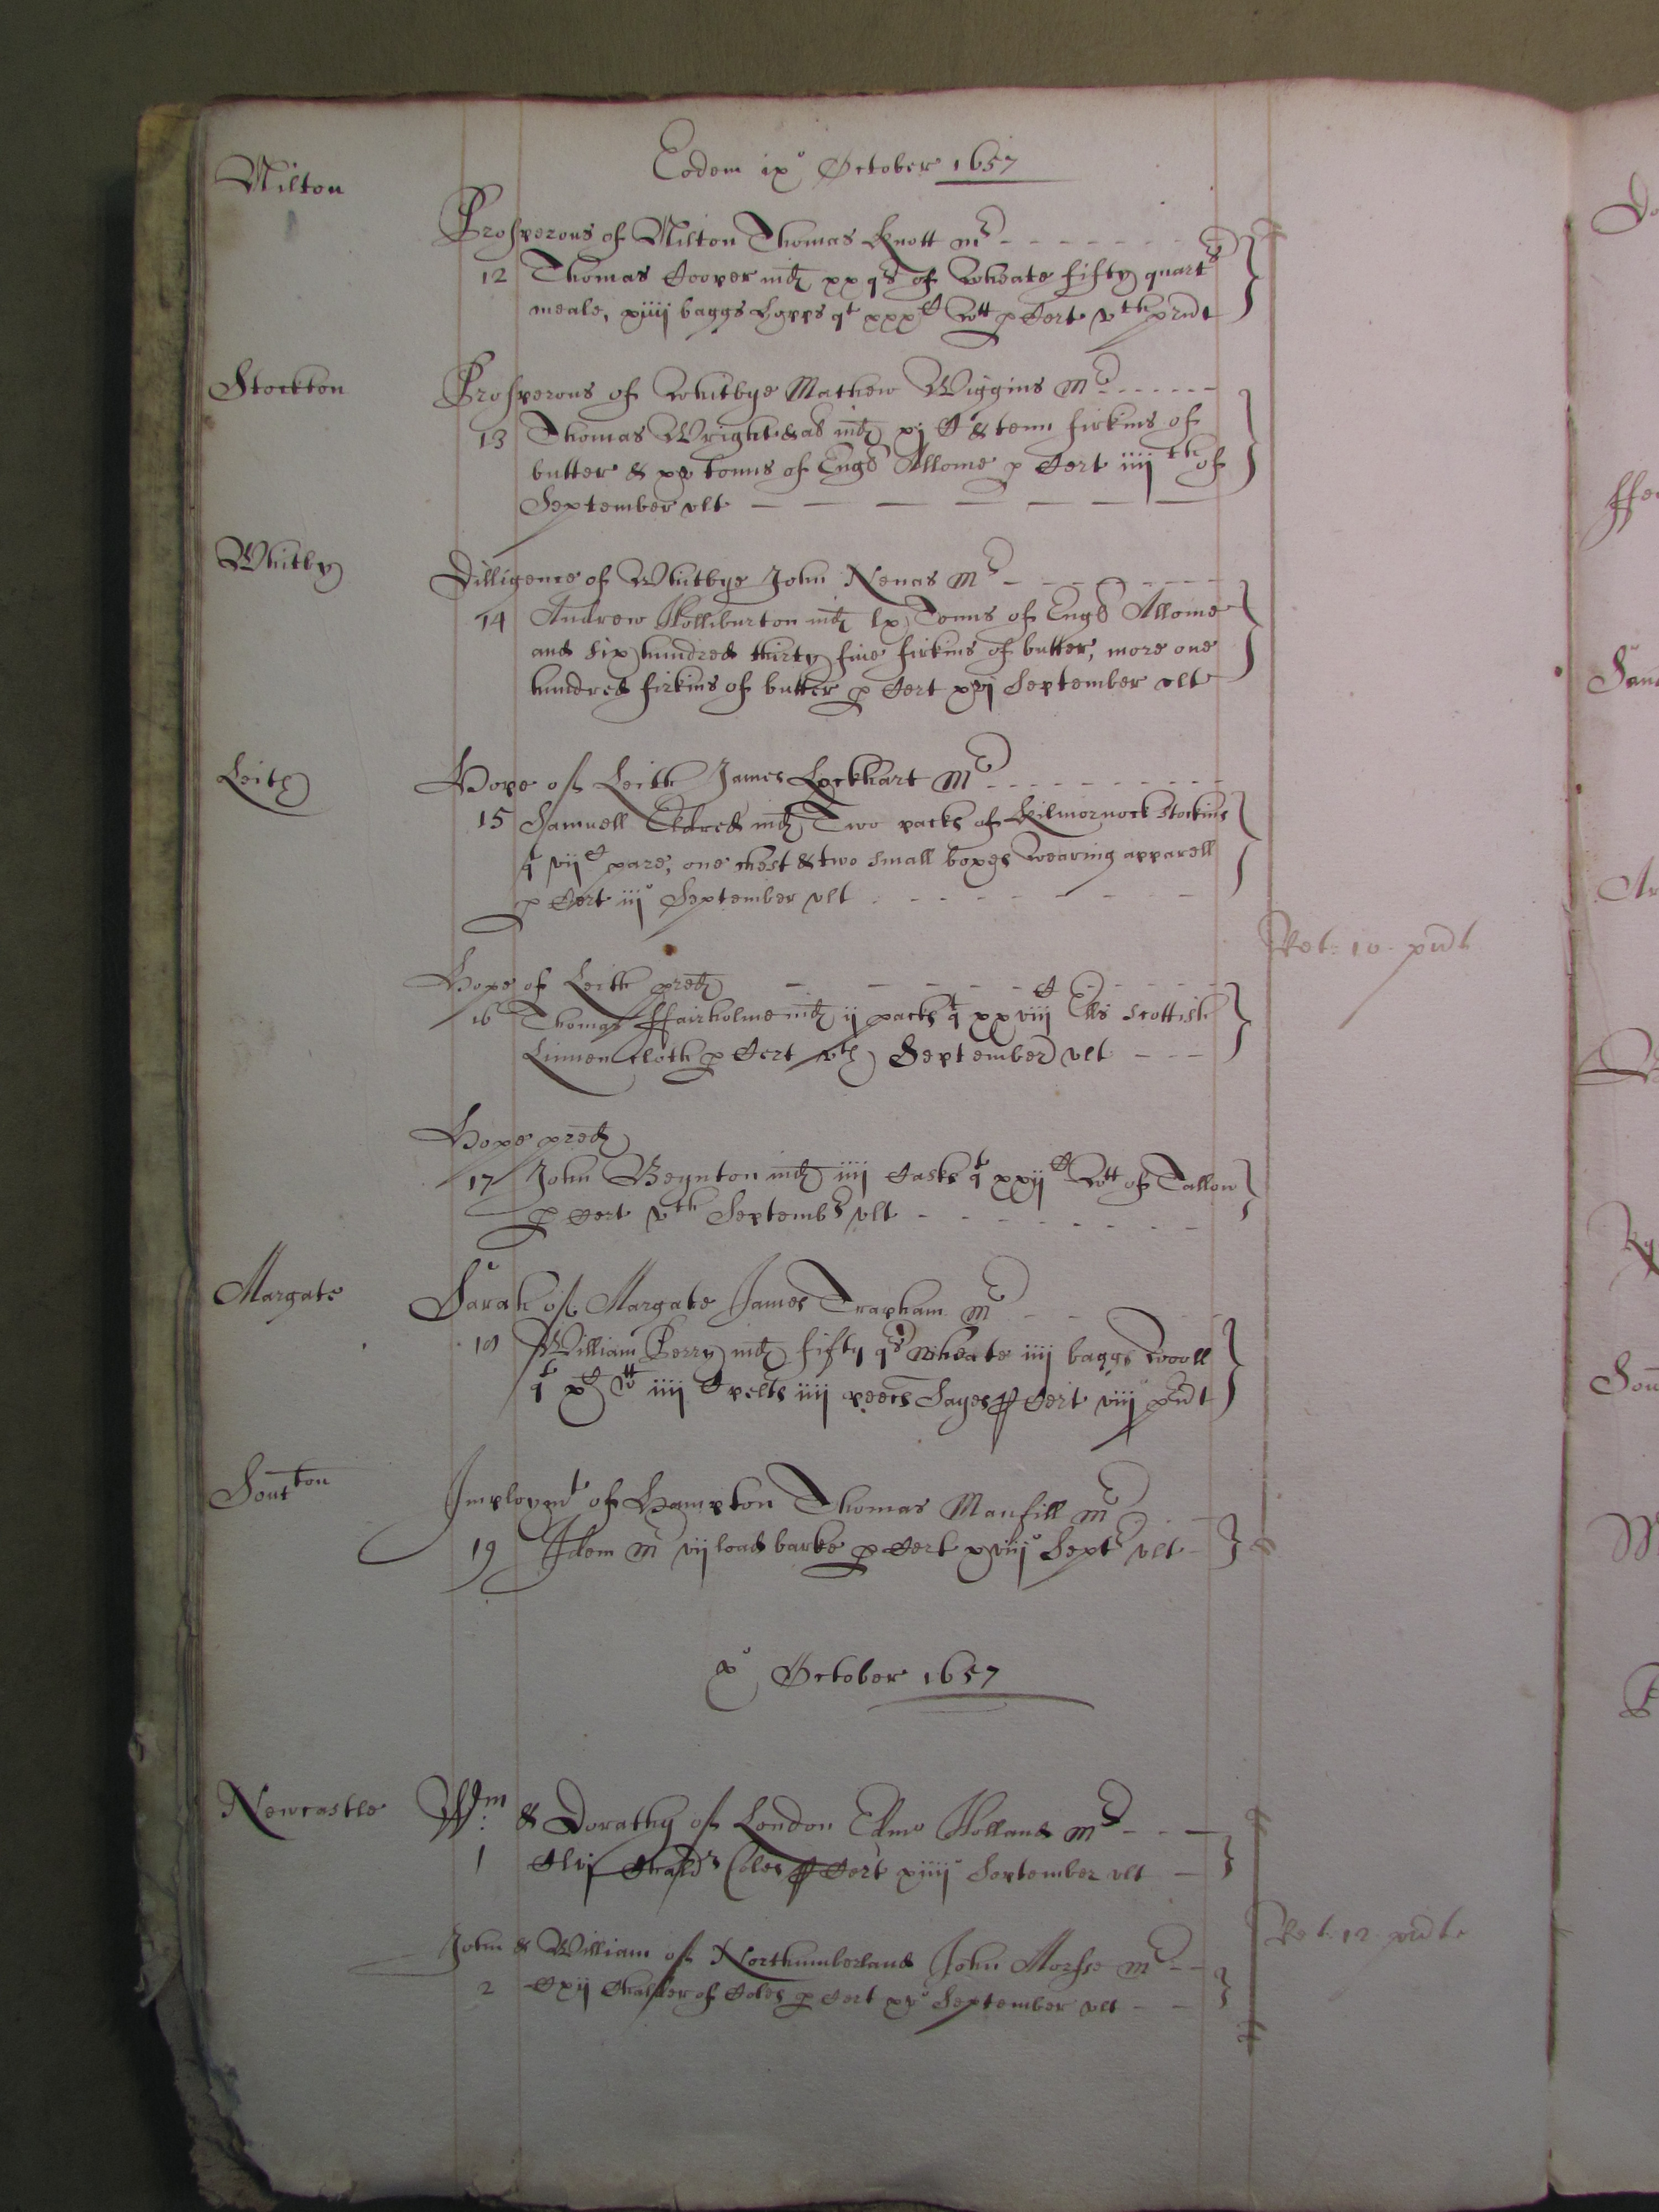 Eodem ixº October 1657
Milton
Prosperous of Milton Thomas Knott mr
12 Thomas Cooper indz xx qrs of wheate fifty quartrs
meale, xiiij baggs hopps qt xxxC wtt p Cert vth prdt
Stockton
Prosperous of Whitbye Mathew Wiggins Mr
13 Thomas Wright & as indz xj C & tenn firkins of
butter & xv tonns of Engd Allome p Cert iiijth of
September vlt
Whitby
Dilligence of Whitbye John Nenas Mr
14 Andrew Holliburton indz lx Tonns of Engd Allome
and six hundred thirty fiue firkins of butter, more one
hundred firkins of butter p Cert xvj September vlt
Leith
Hope of Leith James Lockhart Mr
15 Samuell Eldred indz Two packs of Kilmornock stockins
qt vijC pare, one chest & two small boxes wearing apparell
p Cert iijº September vlt
Ret: 10 prdt
Hope of Leith predz
16 Thomas ffairholme indz ij packs qt xxviijC Ells scottish
Linnen cloth p Cert vth September vlt
Hope predz
17 John Boynton indz iiij Casks qt xxijC wtt of Tallow
p Cert vth Septembr vlt
Margate
Sarah of Margate James Trapham mr
18 William Perry indz fifty qrs wheate iiij baggs wooll
qt xC wtt iiij C pelts iiij peecs Sayes p Cert viij prdt
Southton
Imploymt of Hampton Thomas Manfill mr
19 Idem mr vij load barke p Cert xviijº Septr vlt
xº October 1657
Newcastle
Wm & Dorathy of London Edmo Holland mr
1 Clvj Chaldr Coles p Cert xiiijº September vlt
John & William of Northumberland John Morsse mr
Ret: 12 prdt
2 Cxij Chalder of Coles p Cert xvº September vlt